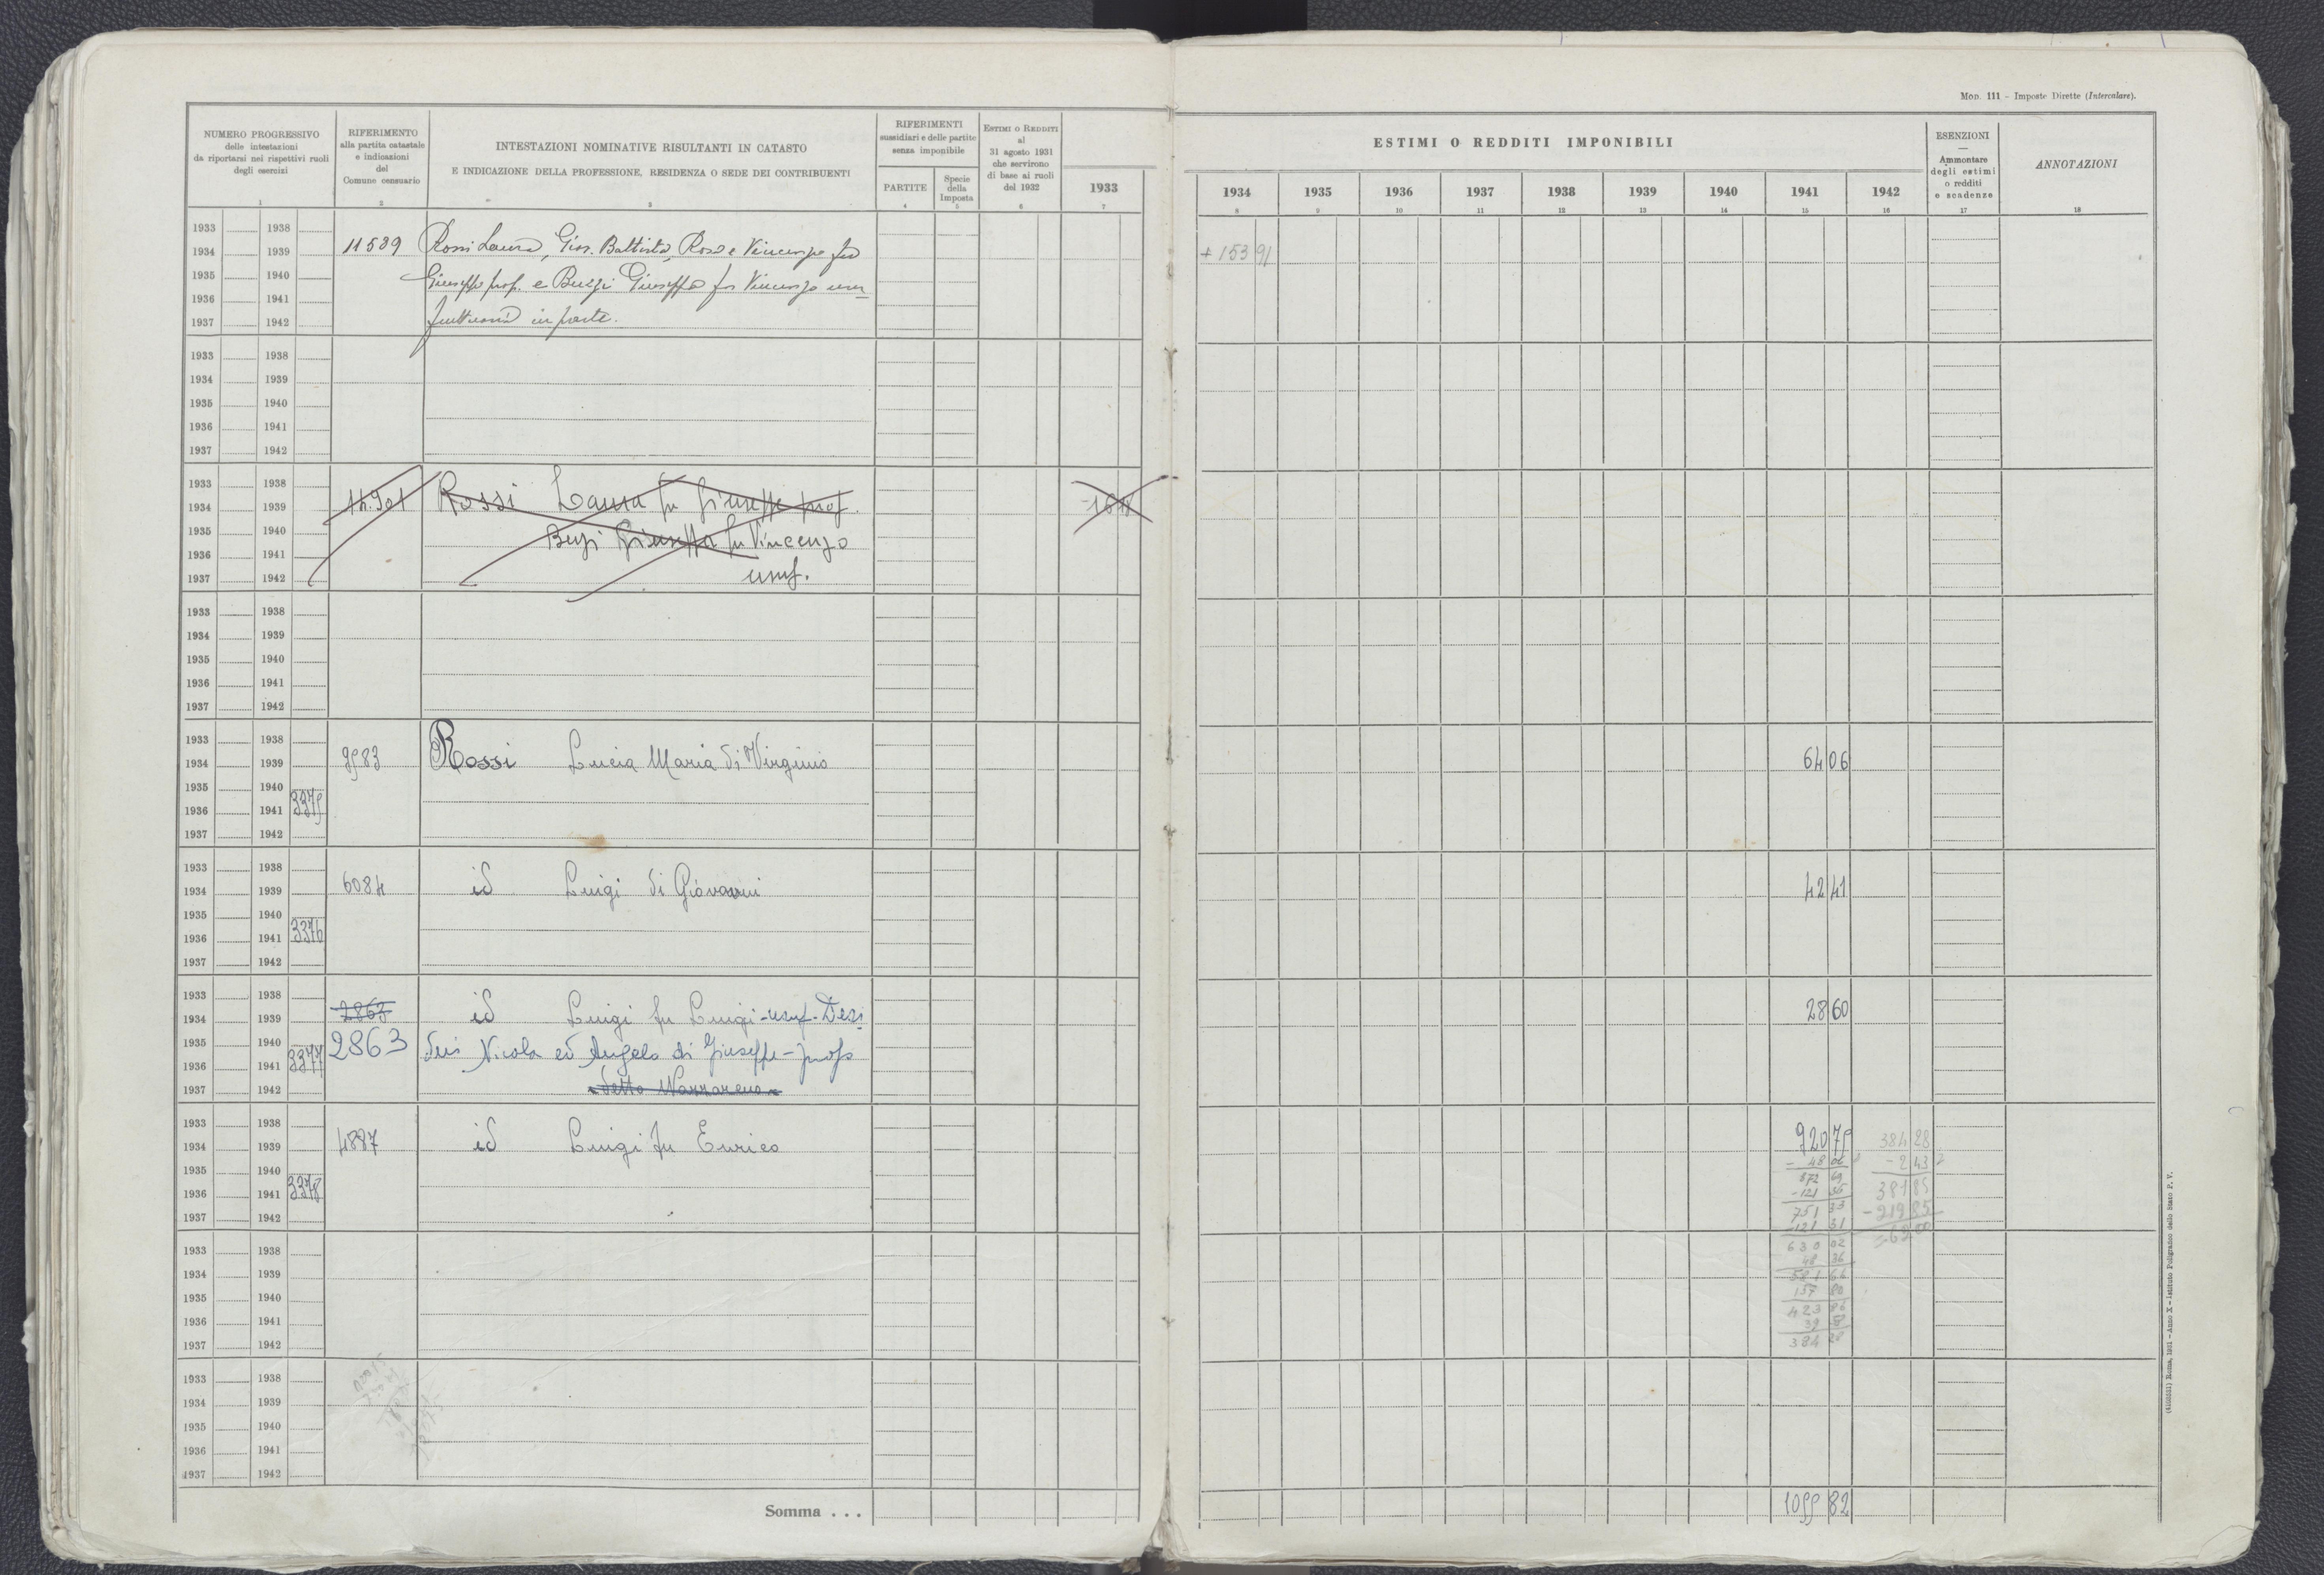 Mod. 111 - Imposte Dirette (Intercalare).
NUMERO PROGRESSIVO
delle intestazioni
da riportarsi nei rispettivi ruoli
degli esercizi
1
RIFERIMENTO
alla partita catastale
e indicazioni
del
Comune censuario
2
INTESTAZIONI NOMINATIVE RISULTANTI IN CATASTO
E INDICAZIONE DELLA PROFESSIONE, RESIDENZA O SEDE DEI CONTRIBUENTI
3
RIFERIMENTI
sussidiari e delle partite
senza imponibile
PARTITE
4
Specie
della
Imposta
5
ESTIMI O REDDITI
al
31 agosto 1931
che servirono
di base ai ruoli
del 1932
6
ESTIMI O REDDITI IMPONIBILI
1933 1934 1935 1936 1937 1938 1939 1940 1941 1942
7 8 9 10 11 12 13 14 15 16
ESENZIONI
—
Ammontare
degli estimi
o redditi
e scadenze
17
ANNOTAZIONI
18
1933 1938
1934 1939 11589 Rossi Laura, Giov. Battista, Rosa e Vincenzo fu + 153 91
1935 1940 Giuseppe prop. e Buzzi Giuseppa fu Vincenzo usu
1936 1941
1937 1942 fruttuaria in parte.
1933 1938
1934 1939
1935 1940
1936 1941
1937 1942
1933 1938
1934 1939 Rossi Laura fu Giuseppe prop.
1935 1940 Giuseppa fu Vincenzo
1936 1941
1937 1942 usuf.
1933 1938
1934 1939
1935 1940
1936 1941
1937 1942
1933 1938
1934 1939 9583 Rossi Lucia Maria di Virginio 64 06
1935 1940
1936 1941 3375
1937 1942
1933 1938
1934 1939 6084 id Luigi di Giovanni 42 41
1935 1940
1936 1941 3376
1937 1942
1933 1938 2863
1934 1939 id Luigi fu Luigi - usuf. Desi 28 60
1935 1940 2863 deri Nicola ed Angelo di Giuseppe - prop
1936 1941 3377
1937 1942 detto Nazzareno
1933 1938
1934 1939 4887 id Luigi fu Enrico 920 75 384 28
1935 1940 - 48 06 - 2 43
1936 1941 3378 872 69 381 85
- 121 36 - 219 85
1937 1942 751 33
- 121 31
1933 1938 630 02
48 36
1934 1939 581 66
1935 1940 157 80
1936 1941 423 86
39 58
1937 1942 384 28
1933 1938
1934 1939
1935 1940
1936 1941
1937 1942
Somma . . . 1055 82